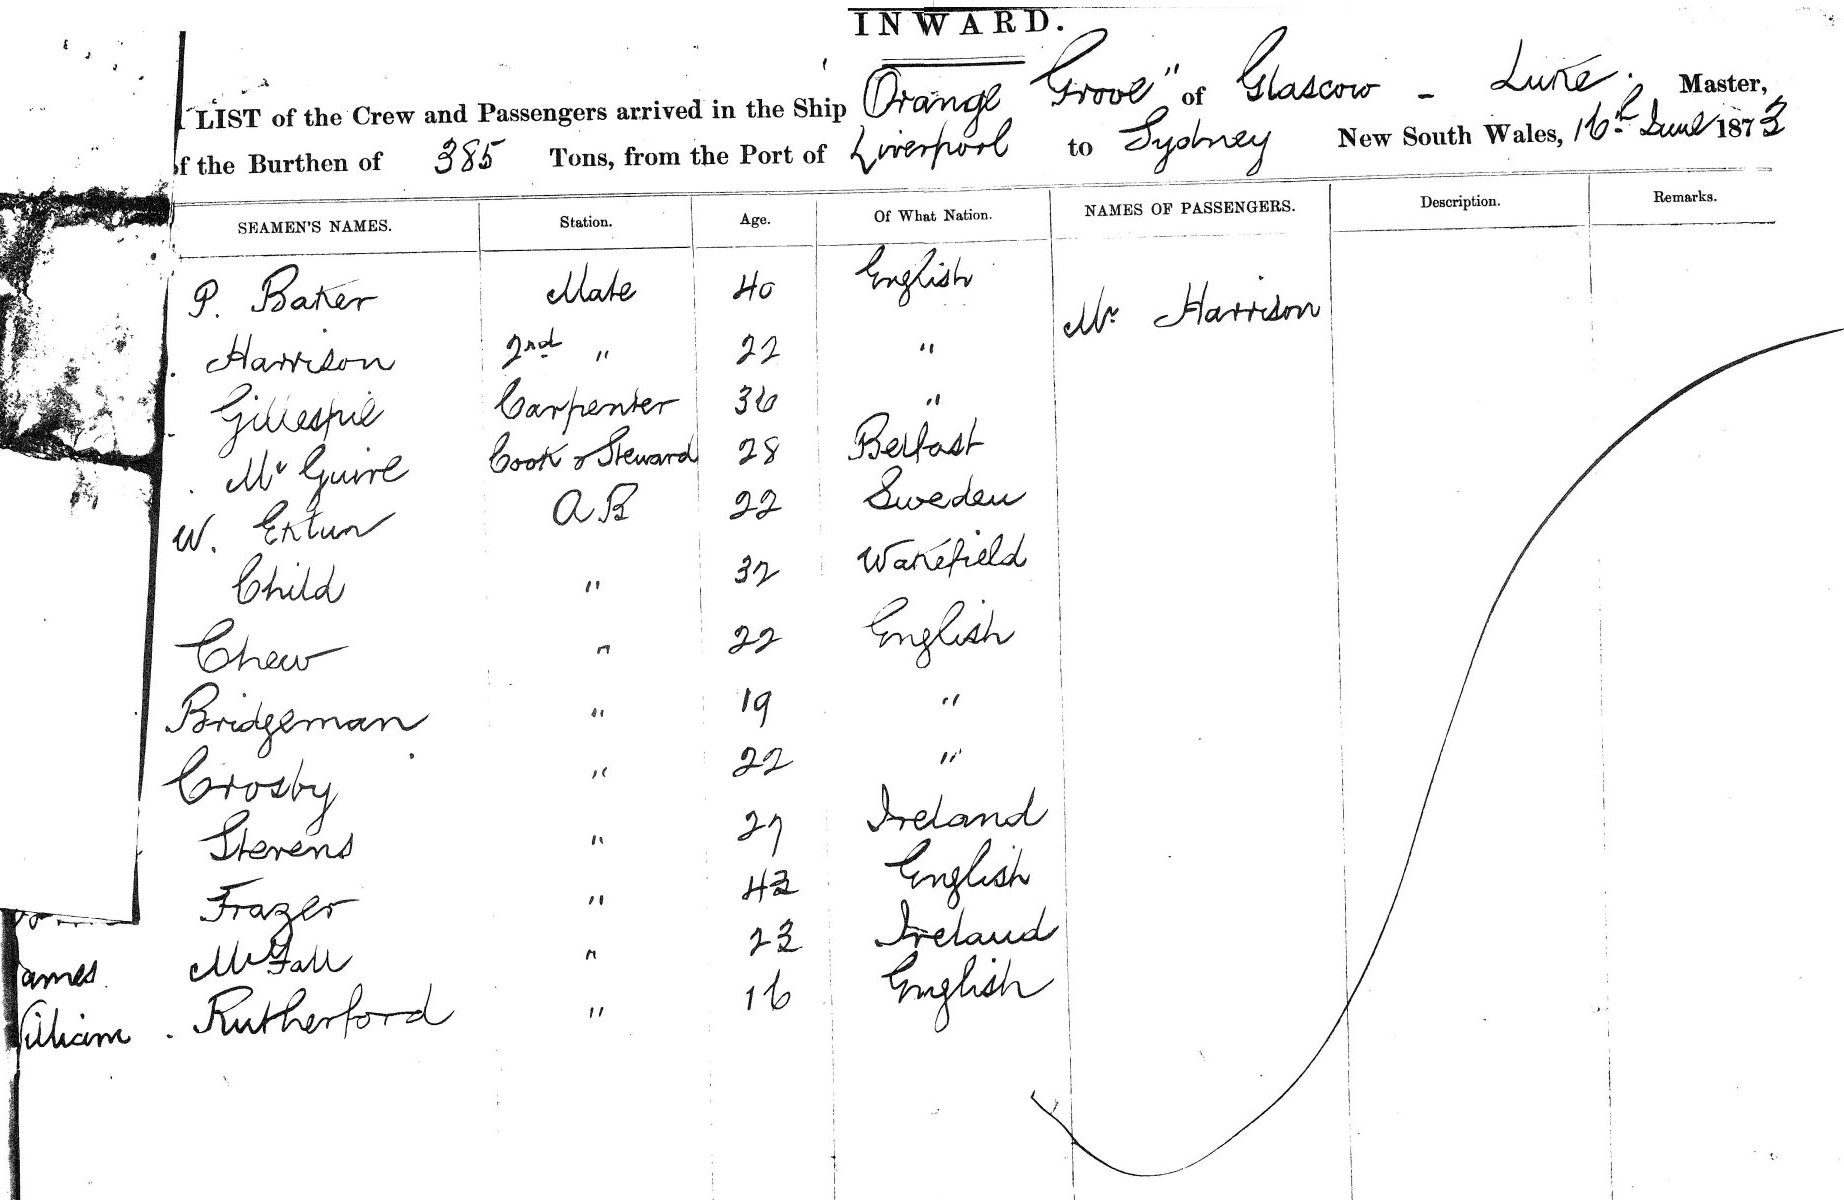 INWARD.
LIST of the Crew and Passengers arrived in the Ship Orange Grove" of Glascow - Luke. Master,
of the Burthen of 385 Tons, from the Port of Liverpool to Sydney New South Wales, 16th June 1873
SEAMEN'S NAMES. Station. Age. Of What Nation. NAMES OF PASSENGERS. Description. Remarks.
P. Baker Mate 40 English Mr Harrison
Harrison 2nd " 22 "
Gillespie Carpenter 36 "
Mc Guire Cook & Steward 28 Belfast
W. Extun A B 22 Sweden
Child " 32 Wakefield
Chew " 22 English
Bridgeman " 19 "
Crosby " 22 "
Stevens " 27 Ireland
Frazer " 43 English
ames McFall " 23 Ireland
illiam. Rutherford " 16 English